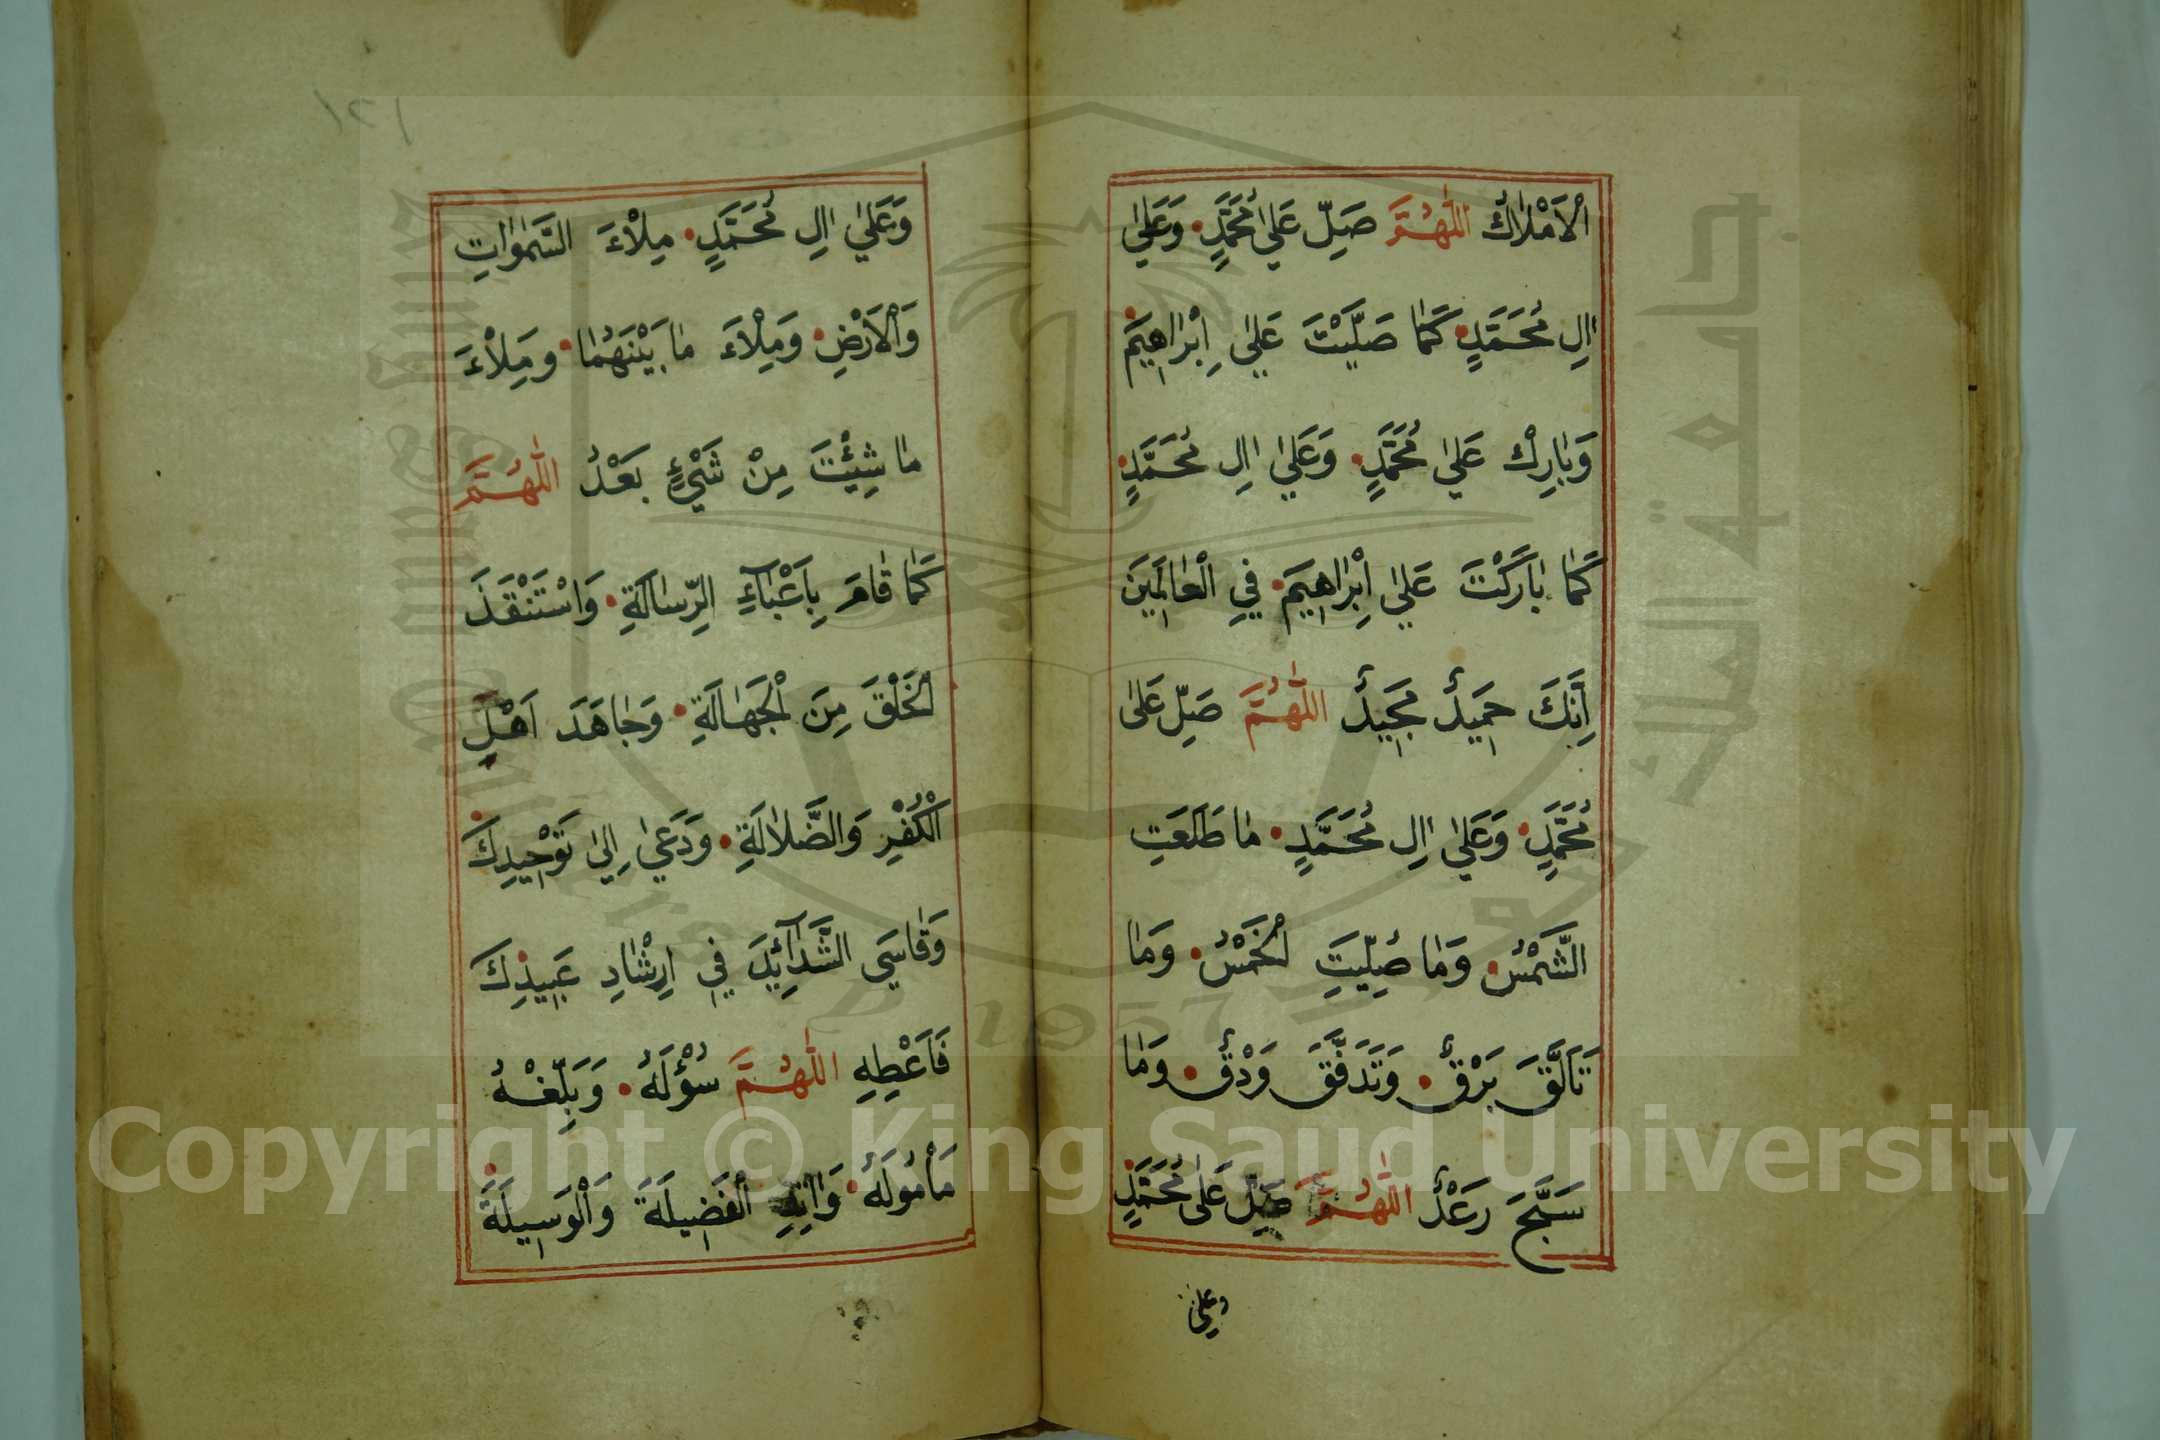 اْلاَمْلاٰكُ اَللّٰهُمَّ صَلِّ عَلٰي مُحَمَّدٍ وَعَلٰي
اٰلِ مُحَمَّدٍ كَمٰا صَلَّيْتَ عَلٰي اِبْرٰاهِيمَ
وَبٰارِكْ عَلٰي مُحَمَّدٍ وَعَلٰي اٰلِ مُحَمَّدٍ
كَمٰا بٰارَكْتَ عَلٰي اِبْرٰاهِيمَ فِي الْعٰالَمِينَ
اِنَّكَ حَمِيدٌ مَجِيدٌ اَللّٰهُمَّ صَلِّ عَلٰى
مُحَمَّدٍ وَعَلٰي اٰلِ مُحَمَّدٍ مٰا طَلَعَتِ
الشَّمْسُ وَمٰا صُلِّيَتِ الْخَمْسُ وَمٰا
تَاَلَّقَ بَرْقٌ وَتَدَفَّقَ وَدْقٌ وَمٰا
سَبَّحَ رَعْدٌ اَللّٰهُمَّ صَلِّ عَلٰى مُحَمَّدٍ
وعلي
١٢١
وَعَلٰي اٰلِ مُحَمَّدٍ مِلْاءَ السَّمٰوٰاتِ
وَالْاَرْضِ وَمِلْاءَ مٰا بَيْنَهُمٰا وَمِلْاءَ
مٰا شِئْتَ مِنْ شَيْءٍ بَعْدُ اَللّٰهُمَّ
كَمٰا قٰامَ بِاَعْبٰآءِ الرِّسٰالَةِ وَاسْتَنْقَذَ
الْخَلْقَ مِنَ الْجَهٰالَةِ وَجٰاهَدَ اَهْلَ
الْكُفْرِ وَالضَّلاٰلَةِ وَدَعٰي اِلٰي تَوْحِيدِكَ
وَقٰاسَي الشَّدٰآئِدَ فِي اِرْشٰادِ عَبِيدِكَ
فَاَعْطِهِ اَللّٰهُمَّ سُؤْلَهُ وَبَلِّغْهُ
مَاْمُولَهُ وَاٰتِهِ الْفَضِيلَةَ وَالْوَسِيلَةَ
جامعة الملك سعود
King Saud University
1957
Copyright © King Saud University